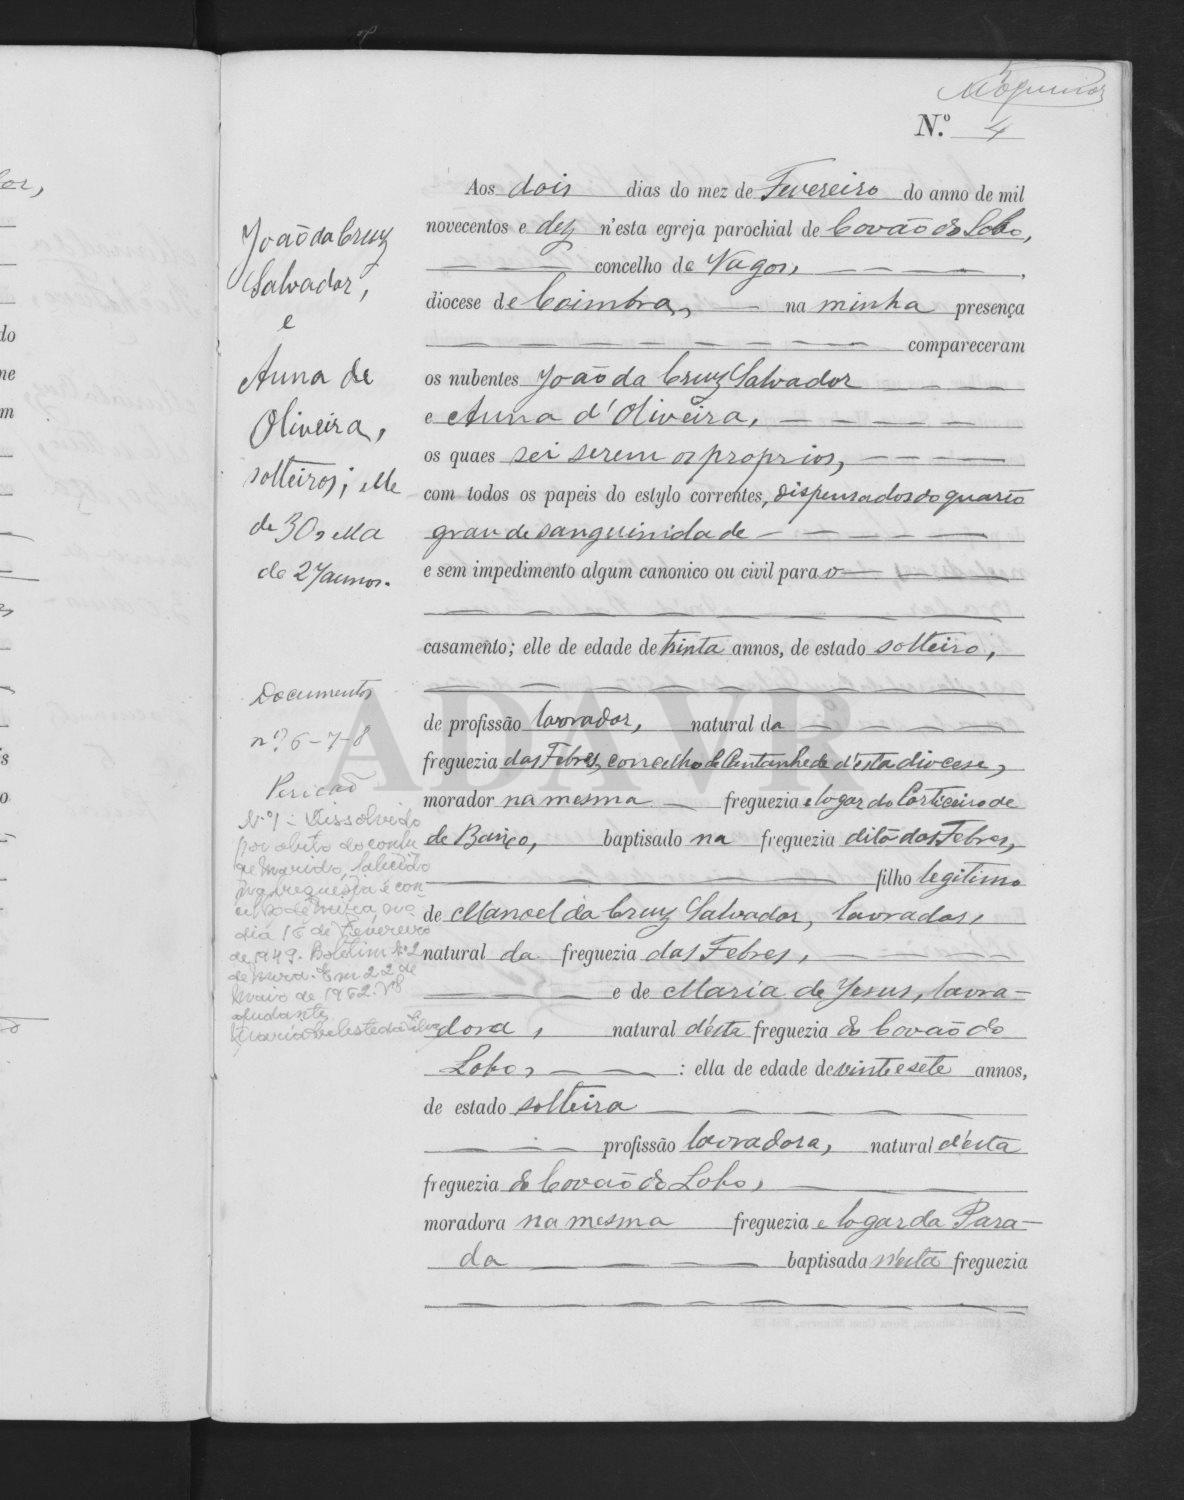 5
N.º 4
João da Cruz
Salvador,
e
Anna de
Oliveira,
solteiros; elle
de 30, ella
de 27 annos.
Documentos
n.os 6-7-8
Nº 1 - Dissolvido
por obito do conju
ge marido, falecido
na freguesia e con
celho de Mira, no
dia 18 de Fevereiro
de 1949. Boletim Nº 2
de Mira. Em 22 de
Maio de 1952.
ajudante,
Maria Celeste da Silva
Aos dois dias do mez de Fevereiro do anno de mil
novecentos e dez n'esta egreja parochial de Covão do Lobo,
concelho de Vagos,
diocese de Coimbra, na minha presença
compareceram
os nubentes João da Cruz Salvador
e Anna d'Oliveira,
os quaes sei serem os proprios,
com todos os papeis do estylo correntes, dispensados do quarto
grau de sanguinidade
e sem impedimento algum canonico ou civil para o
casamento; elle de edade de trinta annos, de estado solteiro,
de profissão lavrador, natural da
freguezia das Febres, concelho de Cantanhede d'esta diocese,
morador na mesma freguezia e logar do Corticeiro de
de Baixo, baptisado na freguezia dita das Febres,
filho legitimo
de Manoel da Cruz Salvador, lavrador,
natural da freguezia das Febres,
e de Maria de Jesus, lavra-
dora, natural d'esta freguezia do Covão do
Lobo, : ella de edade de vinte e sete annos,
de estado solteira
profissão lavradora, natural d'esta
freguezia do Covão do Lobo,
moradora na mesma freguezia e logar da Para-
da baptisada n'esta freguezia
ADAVR